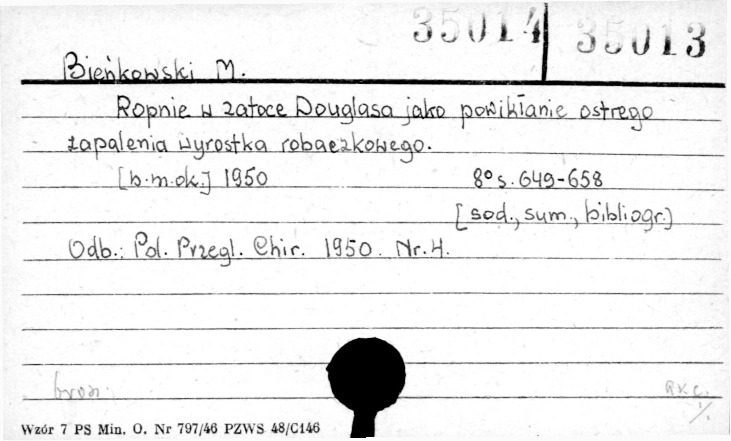 35014 35013
Bieńkowski M.
Ropnie w zatoce Douglasa jako powikłanie ostrego
zapalenia wyrostka robaczkowego.
[b.m.ok.] 1950 8° s. 649-658
[sod., sum., bibliogr.]
Odb.: Pol. Przegl. Chir. 1950. Nr. 4.
Wzór 7 PS Min. O. Nr 797/46 PZWS 48/C146